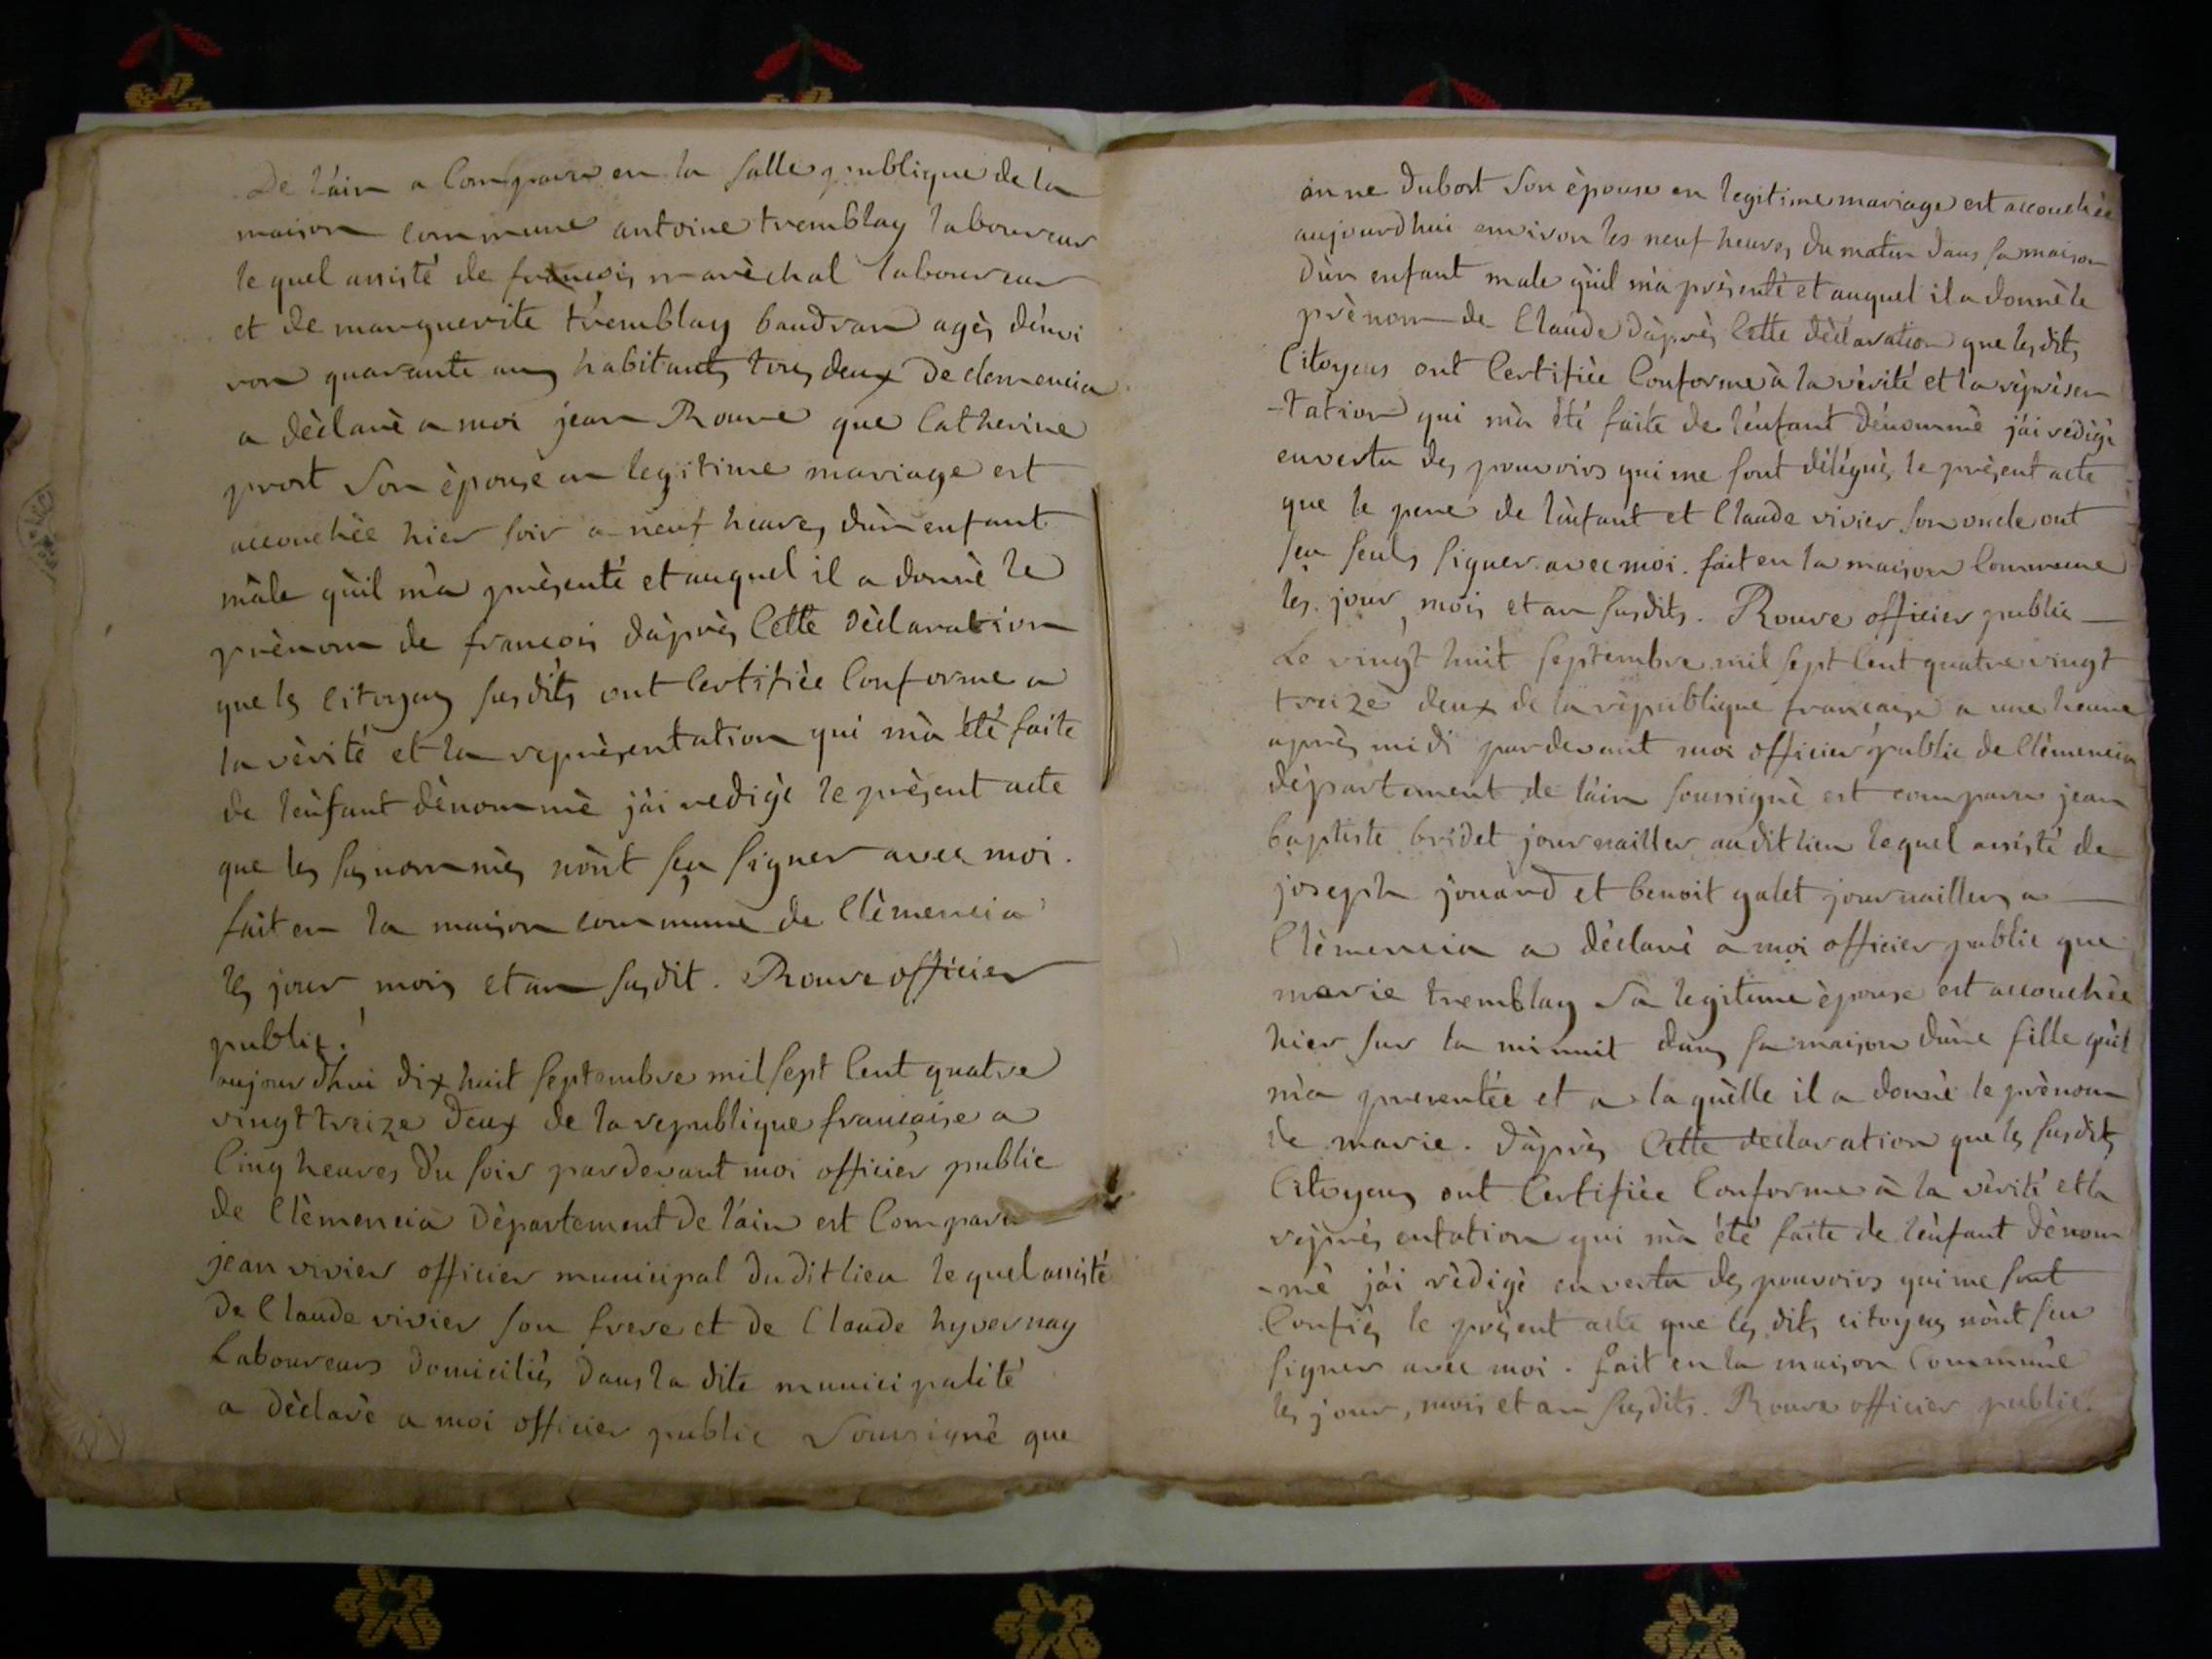 De l'ain a Comparu en la salle publique de la
maison commune antoine tremblay laboureur
lequel assisté de francois marèchal laboureur
et de marguerite tremblay baudran agès d'envi
ron quarante ans habitants tous deux De clemencia
a dèclarè a moi jean Rouve que Catherine
prost Son èpouse en legitime mariage est
accouchèe hier soir a neuf heures d'un enfant
mâle qu'il m'a prèsenté et auquel il a donnè le
prènom de francois d'après Cette dèclaration
que les citoyens susdits ont Certifièe Conforme a
la vèrité et la reprèsentation qui m'a été faite
de l'enfant dènommè j'ai redigé le prèsent acte
que les susnommès n'ont sçu signer avec moi.
fait en la maison commune de Clèmencia
les jour mois et an susdit. Rouve officier
public.
aujourd'hui dix huit septembre mil sept Cent quatre
vingt treize deux de la republique française a
Cinq heures du soir pardevant moi officier public
de Clèmencia Dèpartement de l'ain est Comparu
jean vivier officier municipal dudit lieu lequel assisté
De Claude vivier son frere et de Claude hyvernay
Laboureurs domiciliés dans la dite municipalité
a dèclarè a moi officier public Soussignè que
anne dubost Son èpouse en legitime mariage est accouchèe
aujourdhui environ les neuf heures du matin dans sa maison
d'un enfant male qu'il m'a prèsenté et auquel il a donnè le
prènom de Claude d'après Cette dèclaration que lesdits
Citoyens ont Certifièe Conforme à la vèrité et la rèprèsen
-tation qui m'a été faite de l'enfant dénommè j'ai redigé
en vertu des pouvoirs qui me sont délégués le prèsent acte
que le pere de l'enfant et Claude vivier son oncle ont
sçu seuls signer avec moi. fait en la maison Commune
les jour, mois et an susdits. Rouve officier public
Le vingt huit septembre mil sept Cent quatre vingt
treize deux de la rèpublique francaise a une heure
après midi pardevant moi officier public de Clèmencia
dèpartement de l'ain soussignè est comparu jean
baptiste bridet journailler audit lieu lequel assisté de
joseph jouard et benoit galet journaillers a
Clèmencia a déclarè a moi officier public que
marie tremblay Sa legitime èpouse est accouchèe
hier sur la minuit dans sa maison d'une fille qu'il
m'a presentée et a laquèlle il a donnè le prènom
de marie. d'après Cette declaration que les susdits
Citoyens ont Certifièe Conforme à la vèrité et la
rèprèsentation qui m'a été faite de l'enfant dènom
-mè j'ai rèdigè en vertu des pouvoirs qui me sont
Confiés le prèsent acte que les dits citoyens n'ont sçu
signer avec moi. fait en la maison Commune
les jour, mois et an susdits. Rouve officier public.